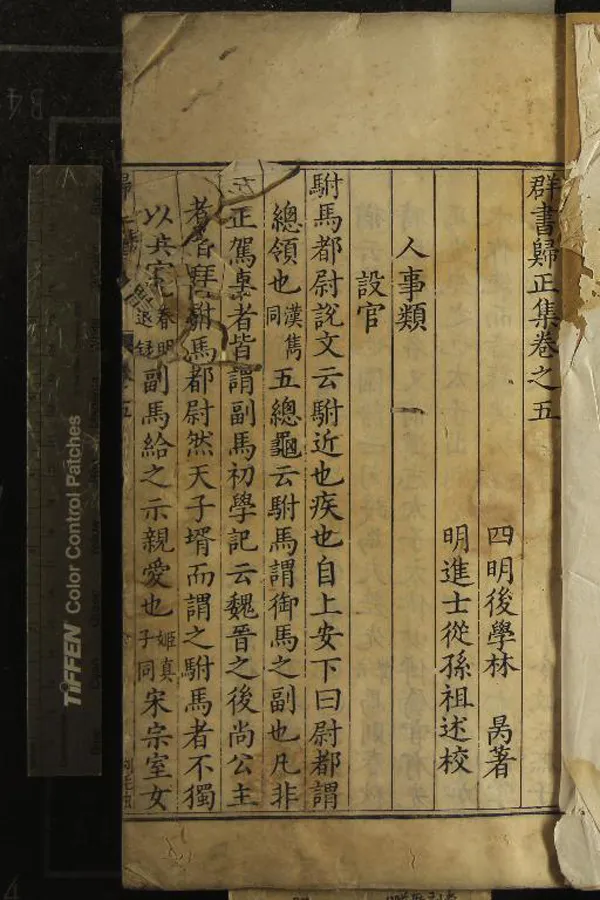 群書歸正集卷之五
四明後學林 昺著
明進士從孫祖述校
人事類一
設官
駙馬都尉說文云駙近也疾也自上安下曰尉都謂
總領也漢雋同五總龜云駙馬謂御馬之副也凡非
正駕車者皆謂副馬初學記云魏晉之後尚公主
者皆拜駙馬都尉然天子壻而謂之駙馬者不獨
以夫家春明退副馬給之示親愛也姬真子同宋宗室女
五
TIFFEN Color Control Patches